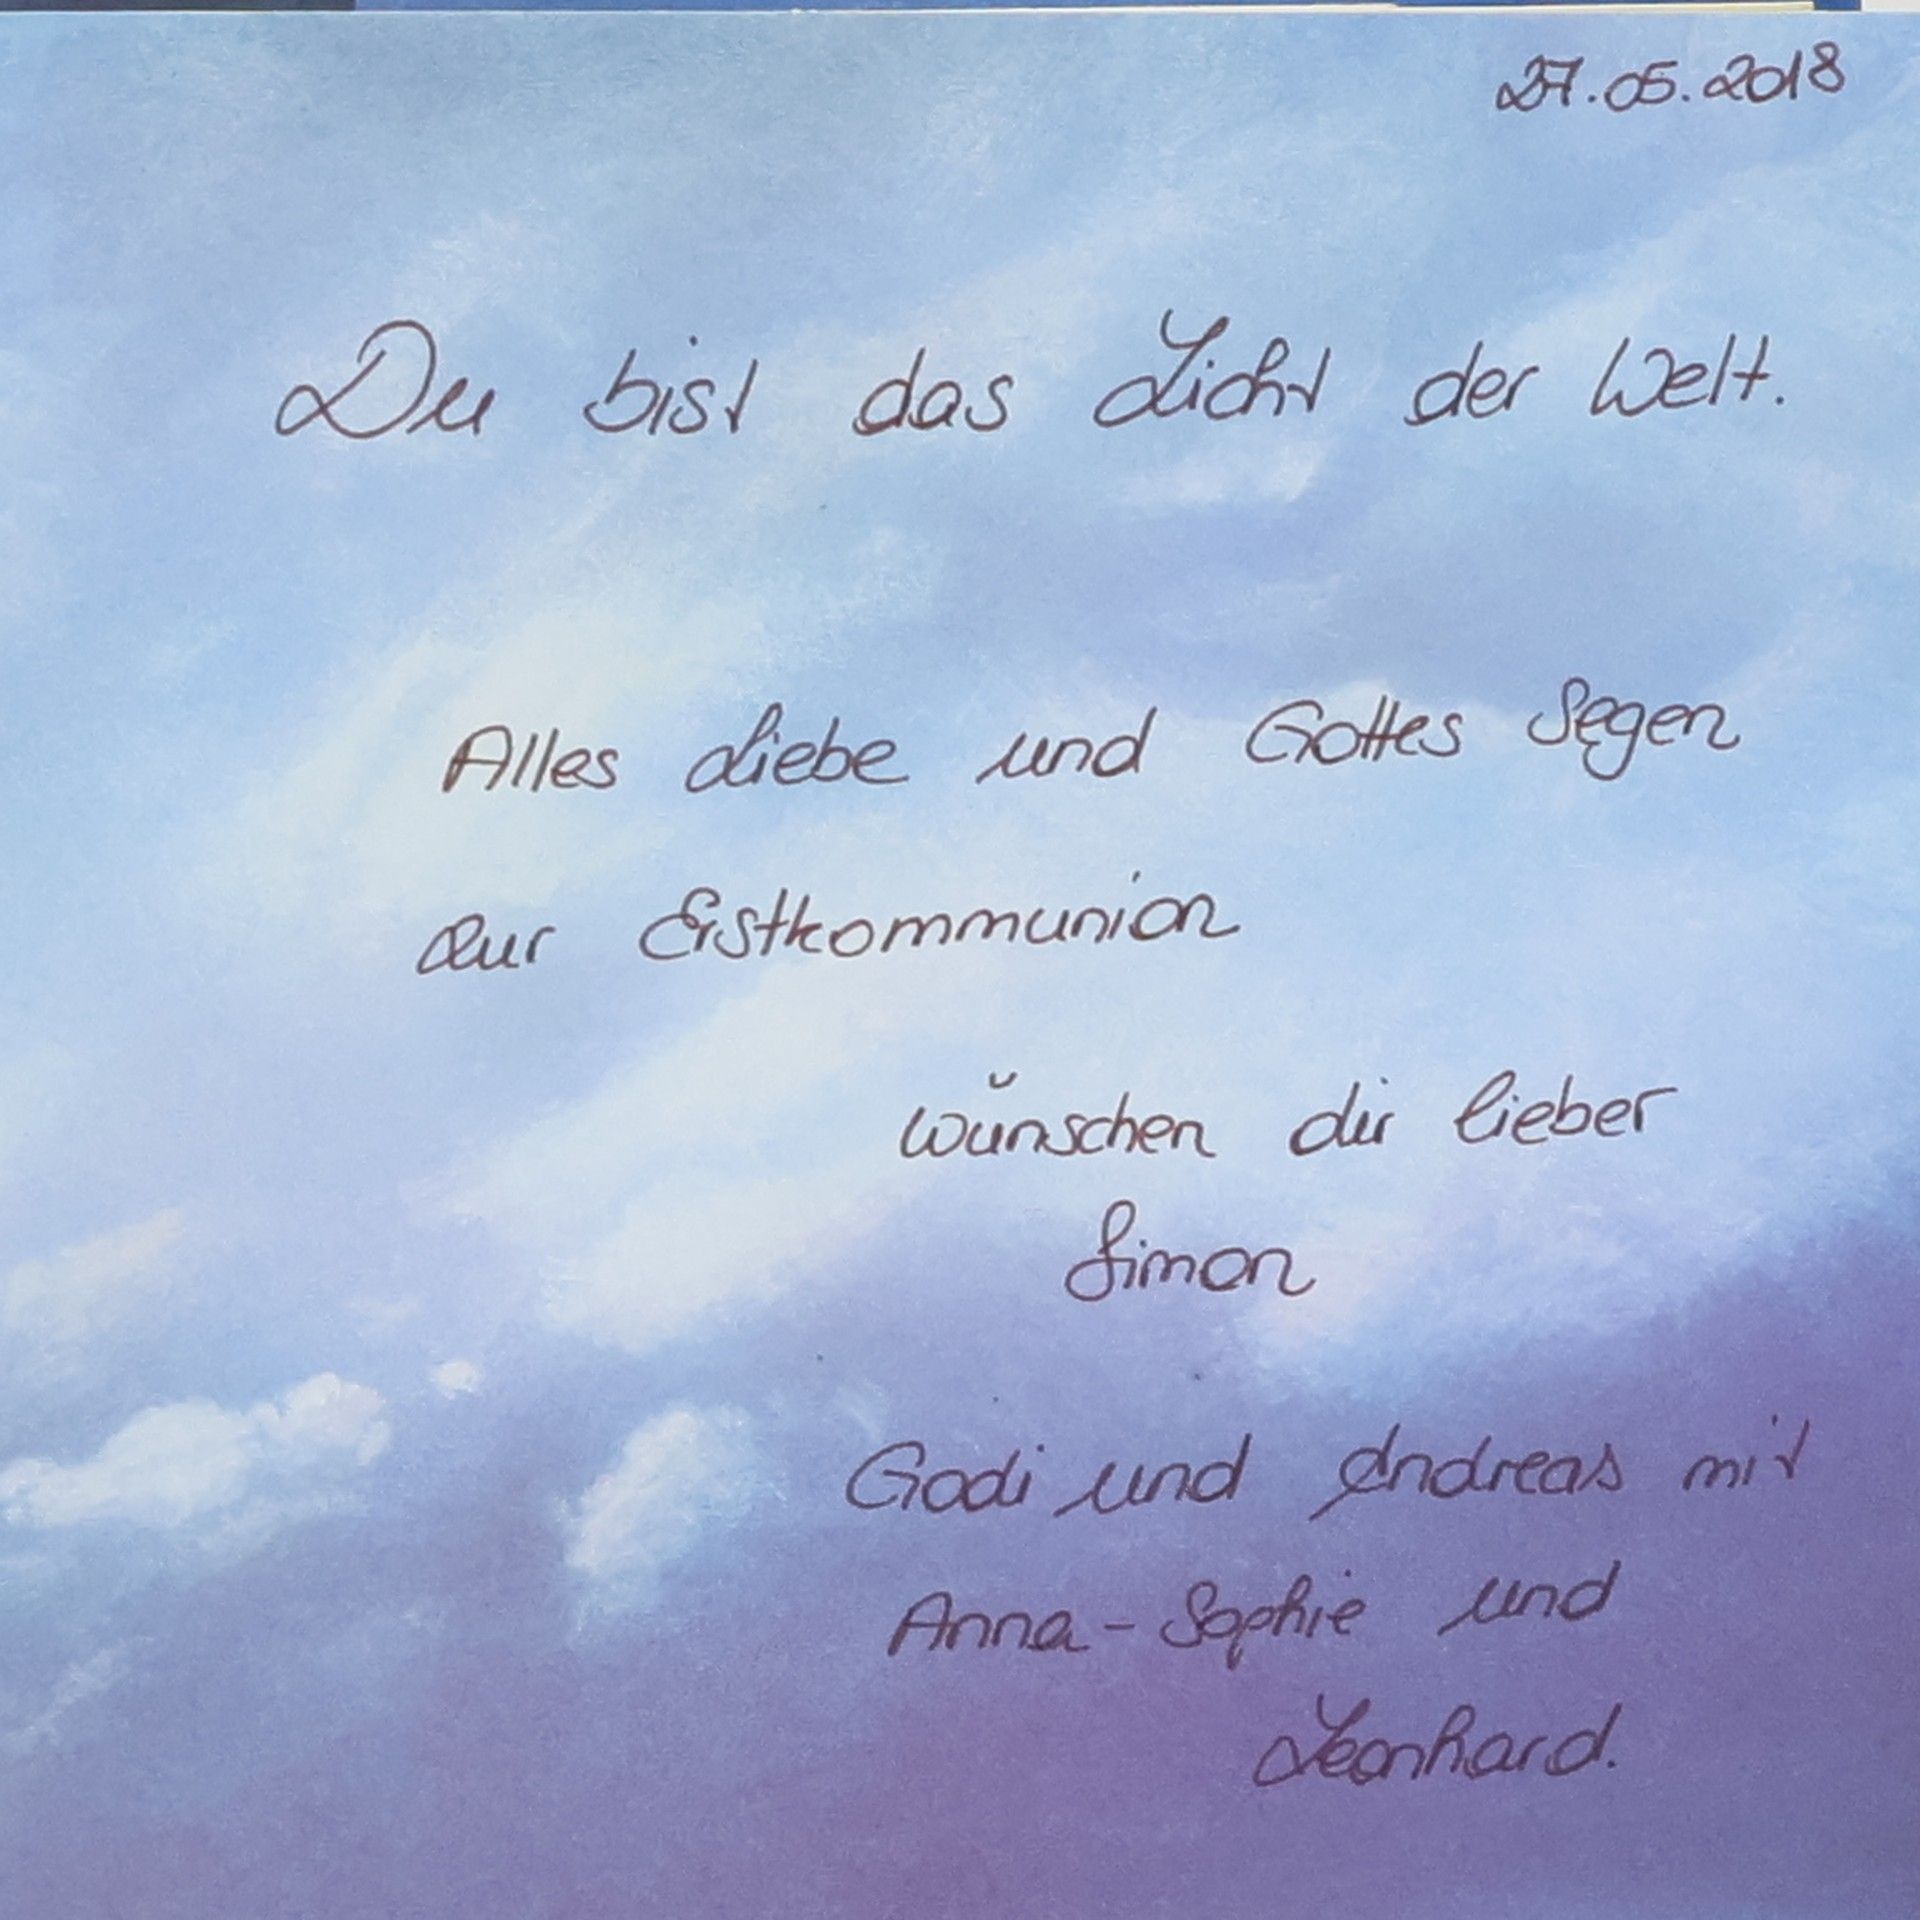 27.05.2018
Du bist das Licht der Welt.
Alles Liebe und Gottes Segen
zur Erstkommunion
wünschen dir lieber
Simon
Godi und Andreas mit
Anna-Sophie und
Leonhard.